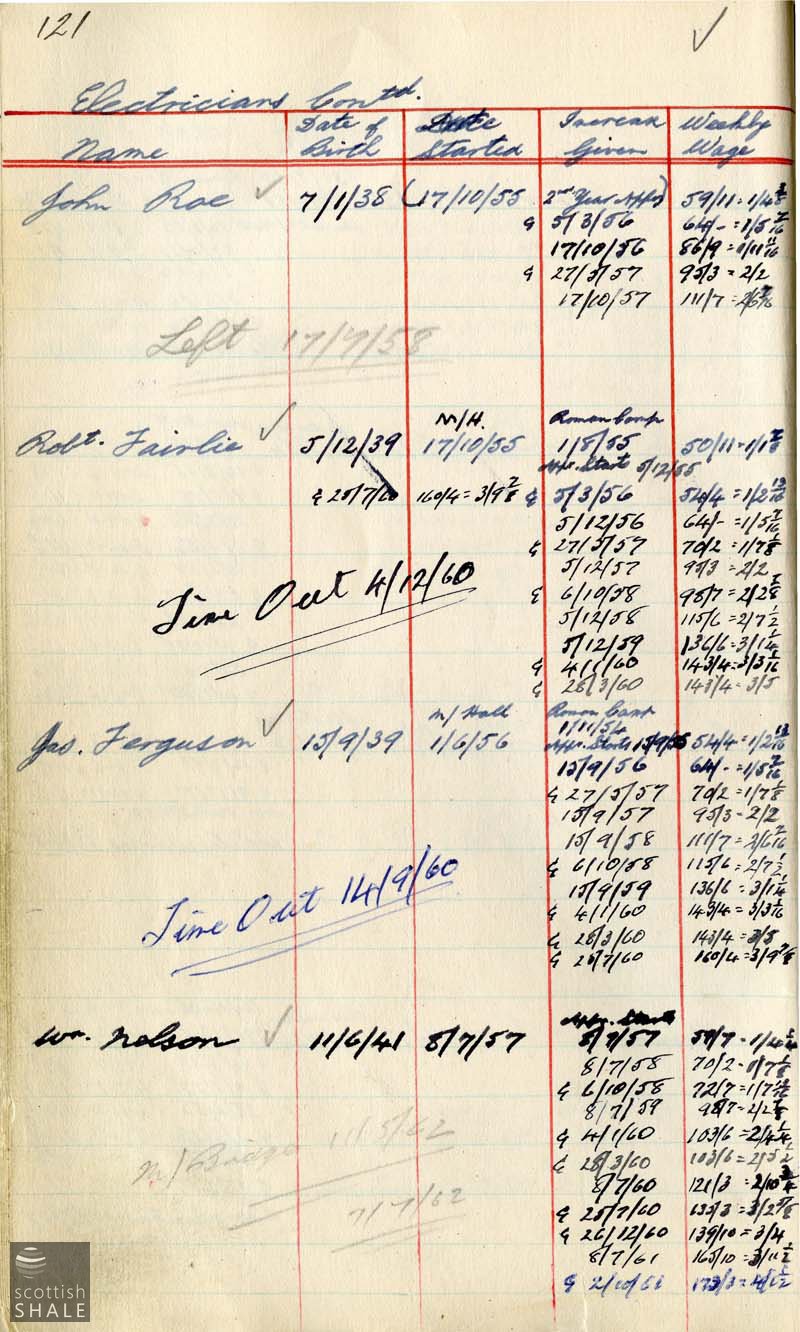 121 ✓
Electricians Contd.
Name Date of Birth Date Started Increase Given Weekly Wage
John Roe ✓ 7/1/38 (17/10/55 2nd Year Appr) 59/11 =
& 5/3/56 64/- = 1/5 7/16
17/10/56 86/9 = 1/11 11/16
& 27/5/57 95/3 = 2/2
17/10/57 111/7 = 2/6 7/16
Left 17/7/58
M/H. Roman Camp
Robt. Fairlie ✓ 5/12/39 17/10/55 1/8/55 50/11 =
Appr. Start 5/12/55
& 25/7/60 160/4 = 3/9 7/8 & 5/3/56 54/4 = 1/2 13/16
5/12/56 64/- = 1/5 7/16
& 27/5/57 70/2 = 1/7 1/8
5/12/57 95/3 = 2/2
& 6/10/58 98/7 = 2/2 7/8
5/12/58 115/6 = 2/7 1/2
Time Out 4/12/60
5/12/59 136/6 = 3/1 1/4
& 4/1/60 143/4 = 3/3 1/16
& 28/3/60 143/4 = 3/5
M/Hall Roman Camp
1/11/54
Jas. Ferguson ✓ 15/9/39 1/6/56 Appr. Starts 15/9/55 54/4 = 1/2 13/16
15/9/56 64/- = 1/5 7/16
& 27/5/57 70/2 = 1/7 1/8
15/9/57 95/3 = 2/2
15/9/58 111/7 = 2/6 7/16
& 6/10/58 115/6 = 2/7 1/2
15/9/59 136/6 = 3/1 1/4
Time Out 14/9/60
& 4/1/60 143/4 = 3/3 1/16
& 28/3/60 143/4 = 3/5
& 25/7/60 160/4 = 3/9 7/8
Appr. Starts
Wm. Nelson ✓ 11/6/41 8/7/57 8/7/57
8/7/58 70/2 = 1/7 1/8
& 6/10/58 72/7 = 1/7 13/16
8/7/59 98/7 = 2/2 7/8
& 4/1/60 103/6 = 2/4 1/4
& 28/3/60 103/6 = 2/5 1/2
M/Bridge 11/5/62
8/7/60 121/3 = 2/10 3/4
7/7/62
& 25/7/60 135/3 = 3/2 5/8
& 26/12/60 139/10 = 3/4
8/7/61 165/10 = 3/11 1/2
& 2/10/61
scottish
SHALE